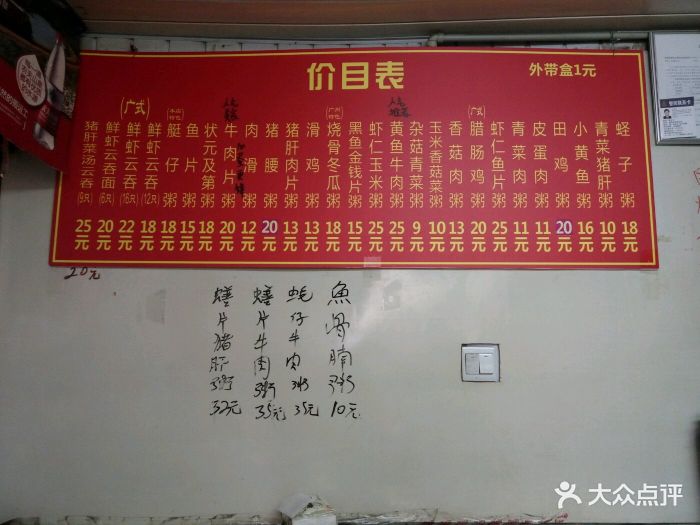 价目表
外带盒1元
猪肝菜汤云吞(9只) 25元
鲜虾云吞面(6只) 20元
(广式)
鲜虾云吞(16只) 22元
鲜虾云吞(12只) 18元
艇仔粥 18元
鱼片粥 15元
状元及第粥 18元
牛肉片粥 20元
肉滑粥 12元
猪腰粥 20元
猪肝肉片粥 13元
滑鸡粥 13元
烧骨冬瓜粥 18元
黑鱼金钱片粥 15元
虾仁玉米粥 25元
黄鱼牛肉粥 25元
杂菇青菜粥 9元
玉米香菇菜粥 10元
香菇肉粥 13元
(广式)
腊肠鸡粥 20元
虾仁鱼片粥 25元
青菜肉粥 11元
皮蛋肉粥 11元
田鸡粥 20元
小黄鱼粥 16元
青菜猪肝粥 10元
蛏子粥 18元
20元
鳝片猪肝粥 32元
鳝片牛肉粥 35元
蚝仔牛肉粥 35元
魚骨腩粥 10元
大众点评